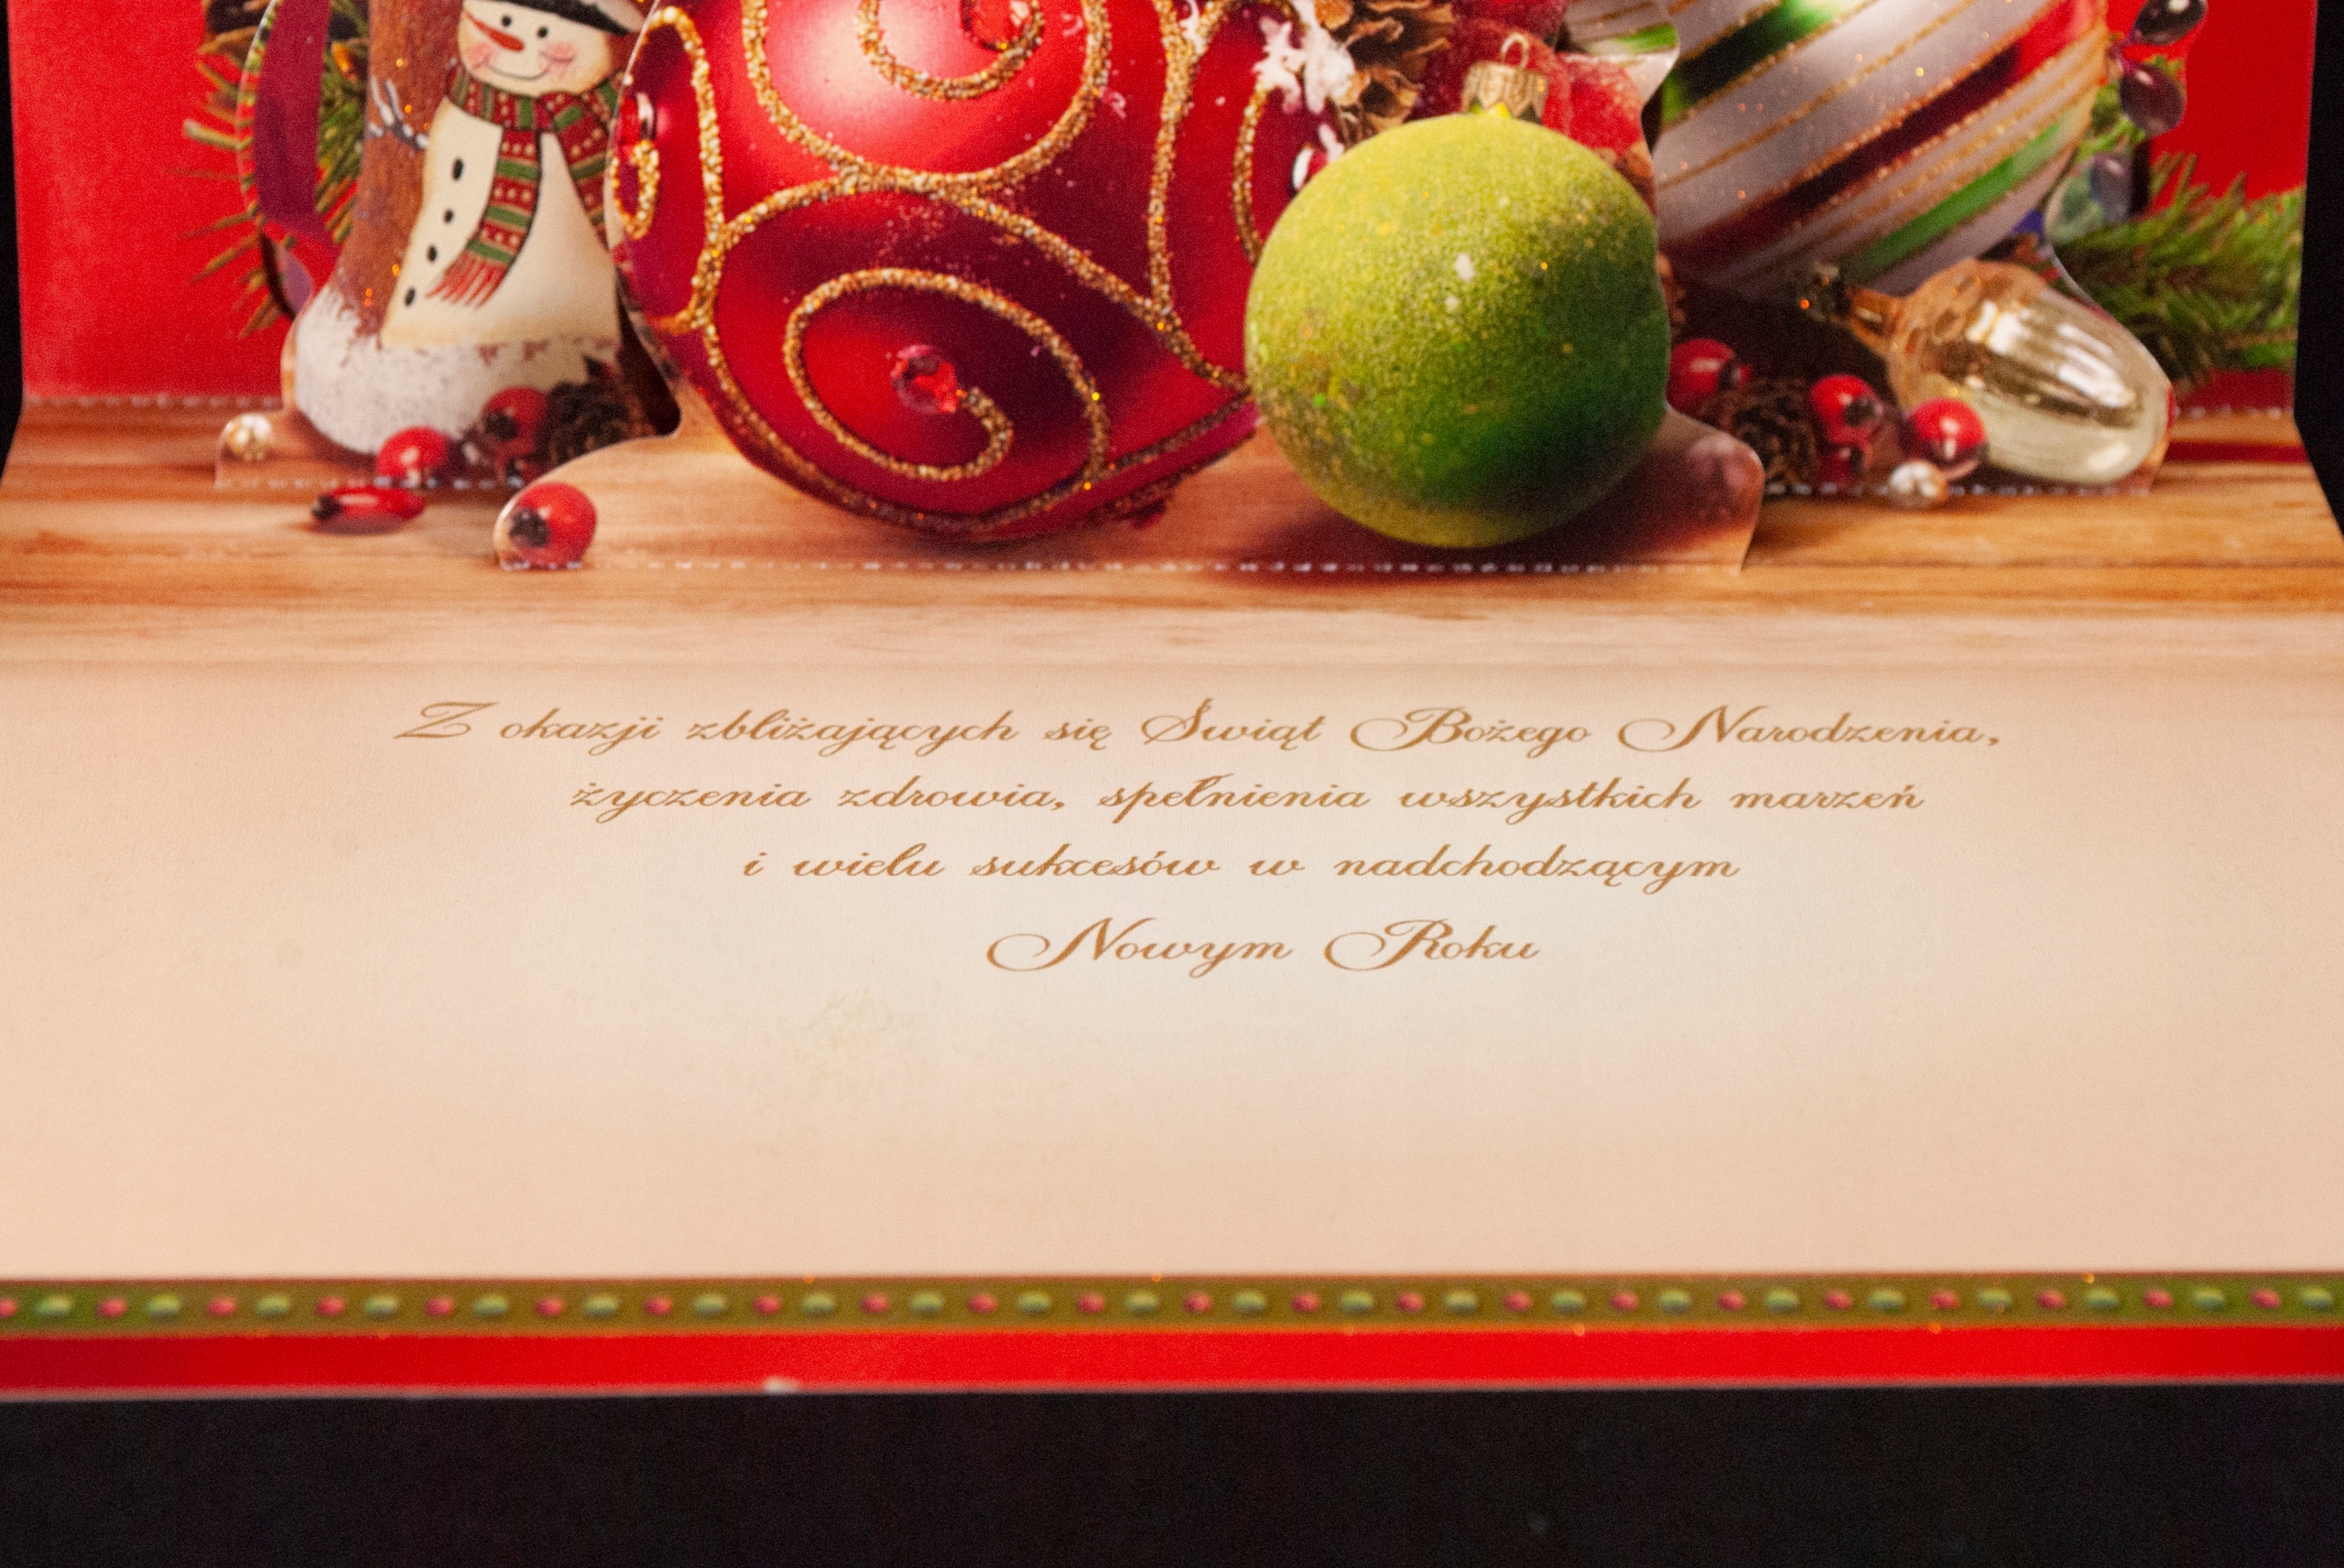 Z okazji zbliżających się Świąt Bożego Narodzenia,
życzenia zdrowia, spełnienia wszystkich marzeń
i wielu sukcesów w nadchodzącym
Nowym Roku